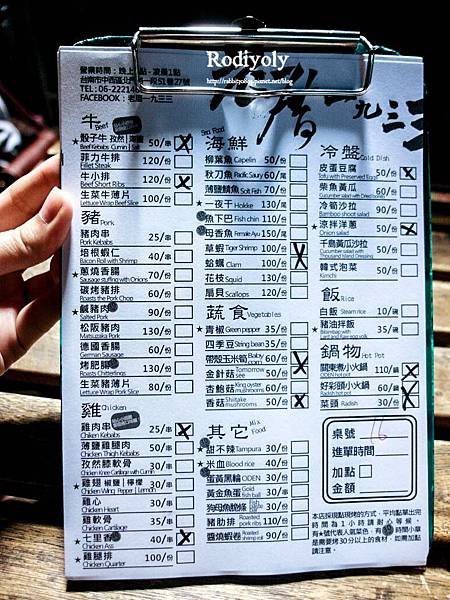 Rodiyoly
http://rabbit38844.pixnet.net/blog
TEL:06-222
FACEBOOK:老厝一九三三
一九三三
牛 Beef
骰子牛 50/串
Beef Kebabs Cumin Salt
菲力牛排 120/份
Fillet Steak
牛小排 120/份
Beef Short Ribs
生菜牛薄片 100/份
Lettuce Wrap Beef Slice
豬 Pork
豬肉串 25/串
Pork Kebabs
培根蝦仁 40/串
Bacon Roll with Shrimp
★蔥燒香腸 70/份
Sausage stuffing with Onions
碳烤豬排 60/份
Roasts the Pork Chop
★鹹豬肉 90/份
Salted Pork
松阪豬肉 130/份
Matsuzaka Pork
德國香腸 60/份
German Sausage
烤肥腸 130/份
Roasts Chitterlings
生菜豬薄片 80/份
Lettuce Wrap Pork Slice
雞 Chicken
雞肉串 25/串
Chiken Kebabs
薄鹽雞腿肉 50/串
Chicken Thigh Kebabs
孜然膝軟骨 30/串
Chicken Knee Cartilage with Cumin
★雞翅 椒鹽|檸檬 30/串
Chicken Wing Pepper|Lemon
雞心 30/串
Chicken Heart
雞軟骨 35/串
Chicken Cartilage
★七里香 40/串
Chicken Ass
雞腿排 100/份
Chicken Quarter
海鮮 Sea Food
柳葉魚 Capelin 50/份
秋刀魚 Pacific Saury 60/尾
薄鹽鯖魚 Solt Fish 70/份
★一夜干 Hokke 130/尾
魚下巴 Fish chin 110/份
★母香魚 Female Ayu 150/尾
草蝦 Tiger Shrimp 100/份
蛤蠣 Clam 100/份
花枝 Squid 130/份
扇貝 Scallops 120/份
蔬食 Vegetables
★青椒 Green pepper 35/份
四季豆 String bean 35/份
帶殼玉米筍 Baby corn 60/份
金針菇 Tomorrow see 50/份
杏鮑菇 King oyster mushrooms 60/份
香菇 Shiitake mushrooms 50/份
其它 Mix Food
★甜不辣 Tampura 30/份
★米血 Blood rice 40/份
蛋黃黑輪 ODEN 30/份
黃金魚蛋 Gold fish ball 30/串
豬肋排 Roasted pork ribs 110/份
醬燒蝦卷 Roasted shrimp roll 90/份
冷盤 Cold Dish
皮蛋豆腐 40/份
Tofu with Preserved Eggs
柴魚黃瓜 60/份
冷筍沙拉 90/份
Bamboo shoot salad
★涼拌洋蔥 50/份
Onion salad
千島黃瓜沙拉 60/份
韓式泡菜 60/份
Kimchi
飯 Rice
白飯 Steam rice 10/碗
★豬油拌飯 35/碗
鍋物 Hot Pot
關東煮小火鍋 110/鍋
ODEN hot pot
好彩頭小火鍋 60/鍋
Radish hot pot
菜頭 Radish 30/份
桌號 16
進單時間
加點
金額
本店採現點現烤的方式,平均點單出完
時間為1小時請耐心等候,
有★號代表人氣菜色,有 時間小草
是需要烤30分以上的食材,如需加點
請注意。